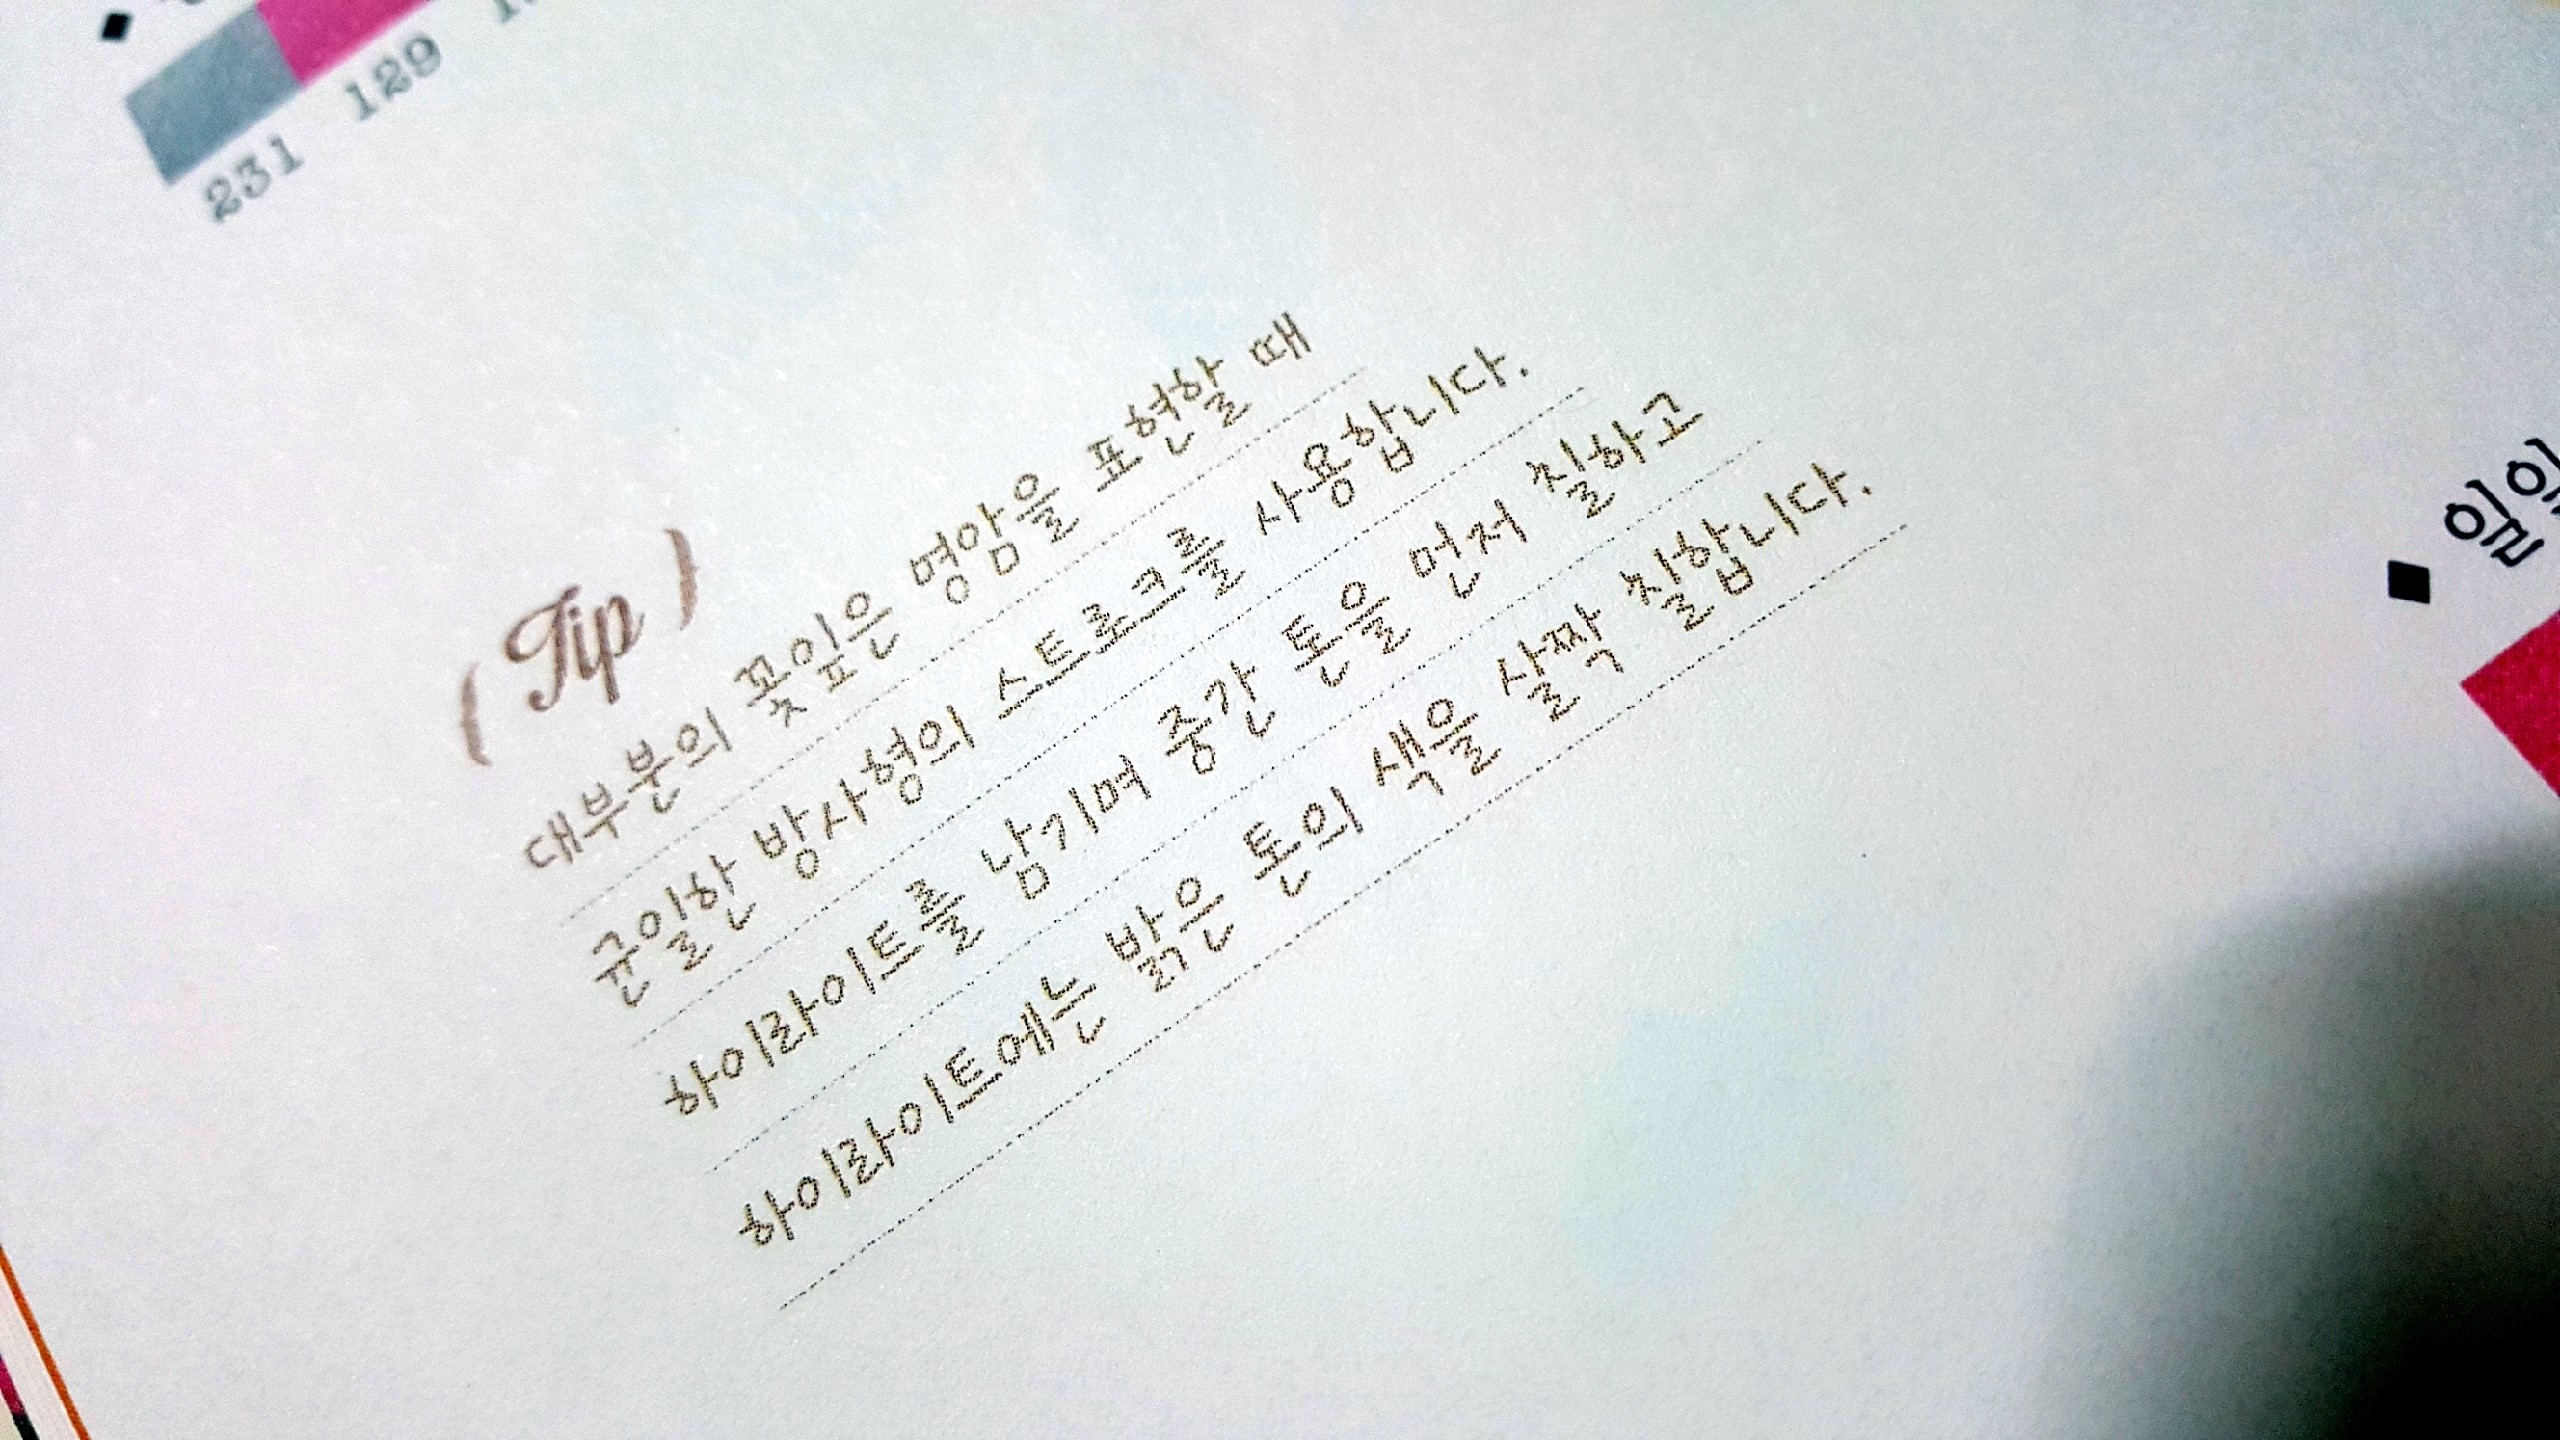 231 129
(Tip)
대부분의 꽃잎은 명암을 표현할 때
균일한 방사형의 스트로크를 사용합니다.
하이라이트를 남기며 중간 톤을 먼저 칠하고
하이라이트에는 밝은 톤의 색을 살짝 칠합니다.